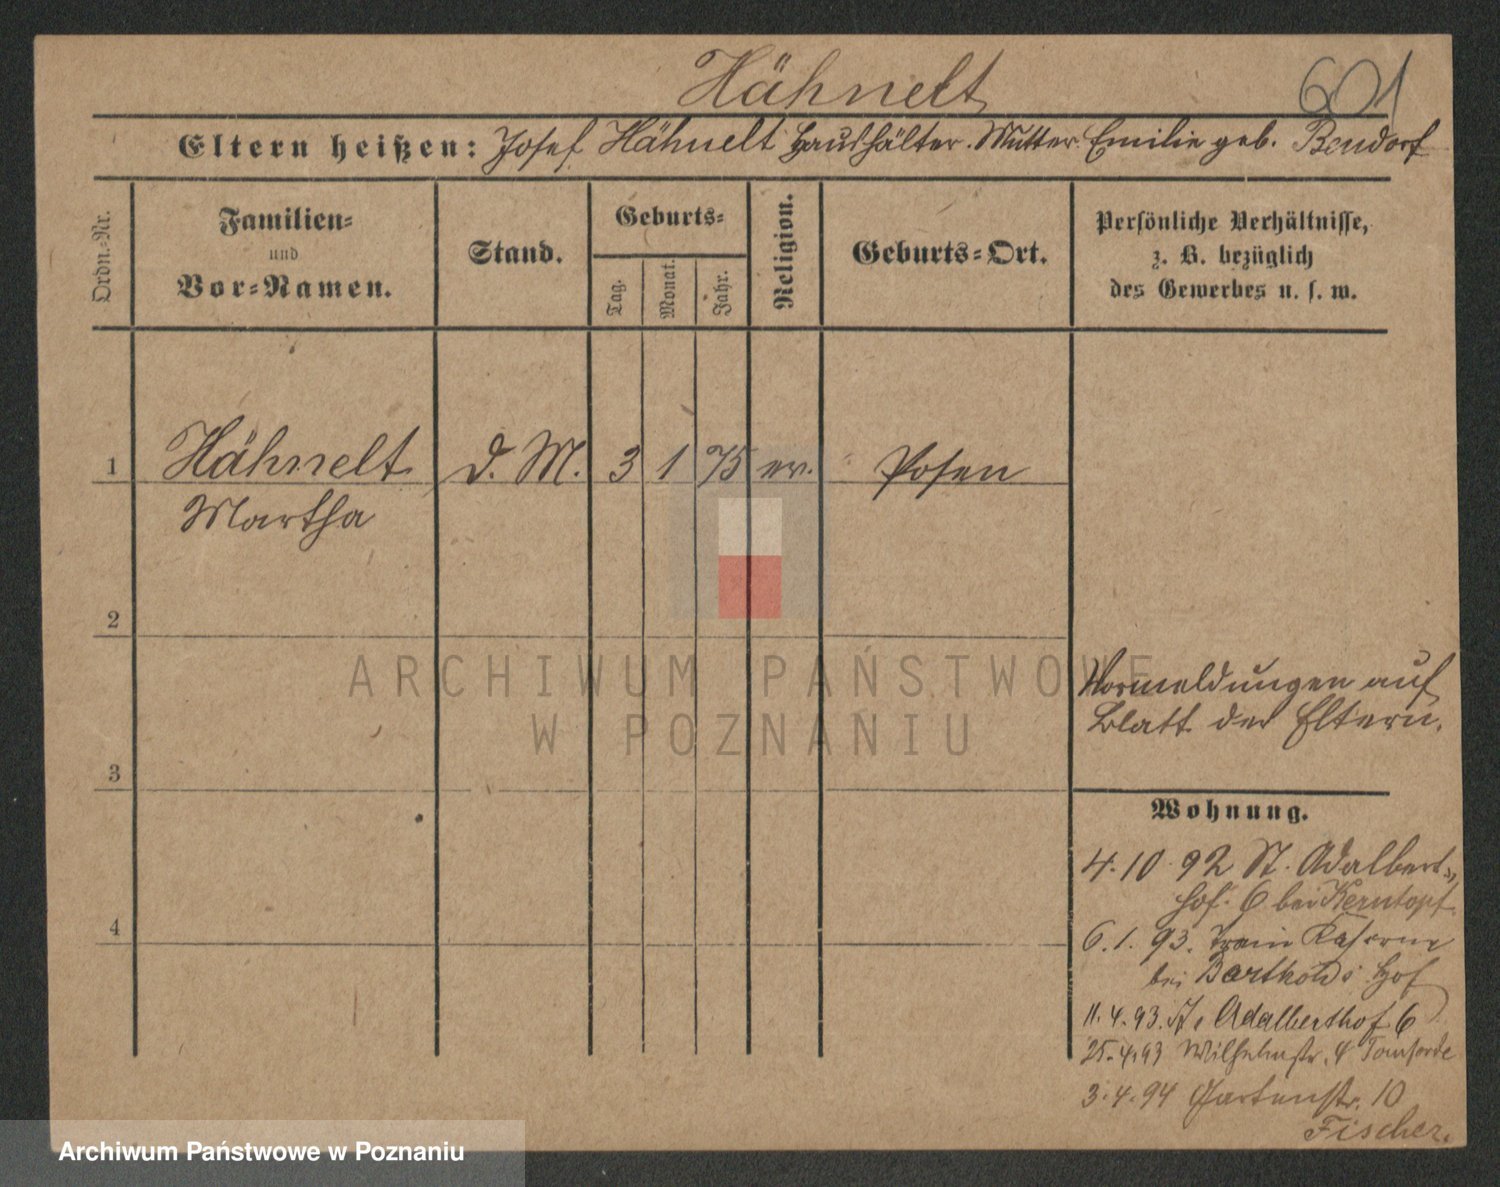 Hähnelt 601
Eltern heißen: Josef Hähnelt Haushälter. Mutter Emilie geb. Bendorf
Ordn.-Nr.
Familien-
und
Vor-Namen.
Stand.
Geburts-
Tag.
Monat.
Jahr.
Religion.
Geburts-Ort.
Persönliche Verhältnisse,
z. B. bezüglich
des Gewerbes u. s. w.
1 Hähnelt d. M. 3 1 75 ev. Posen
Martha
2
3
4
Vormeldungen auf
Blatt der Eltern.
Wohnung.
4.10.92 St. Adalbert-
hof. 6 bei Kerntopf
6.1.93. Train Kaserne
bei Bartholds Hof
11.4.93. St. Adalberthof 6
25.4.93 Wilhelmstr. 4
3.4.94 Gartenstr. 10
Fischer.
ARCHIWUM PAŃSTWOWE
W POZNANIU
Archiwum Państwowe w Poznaniu